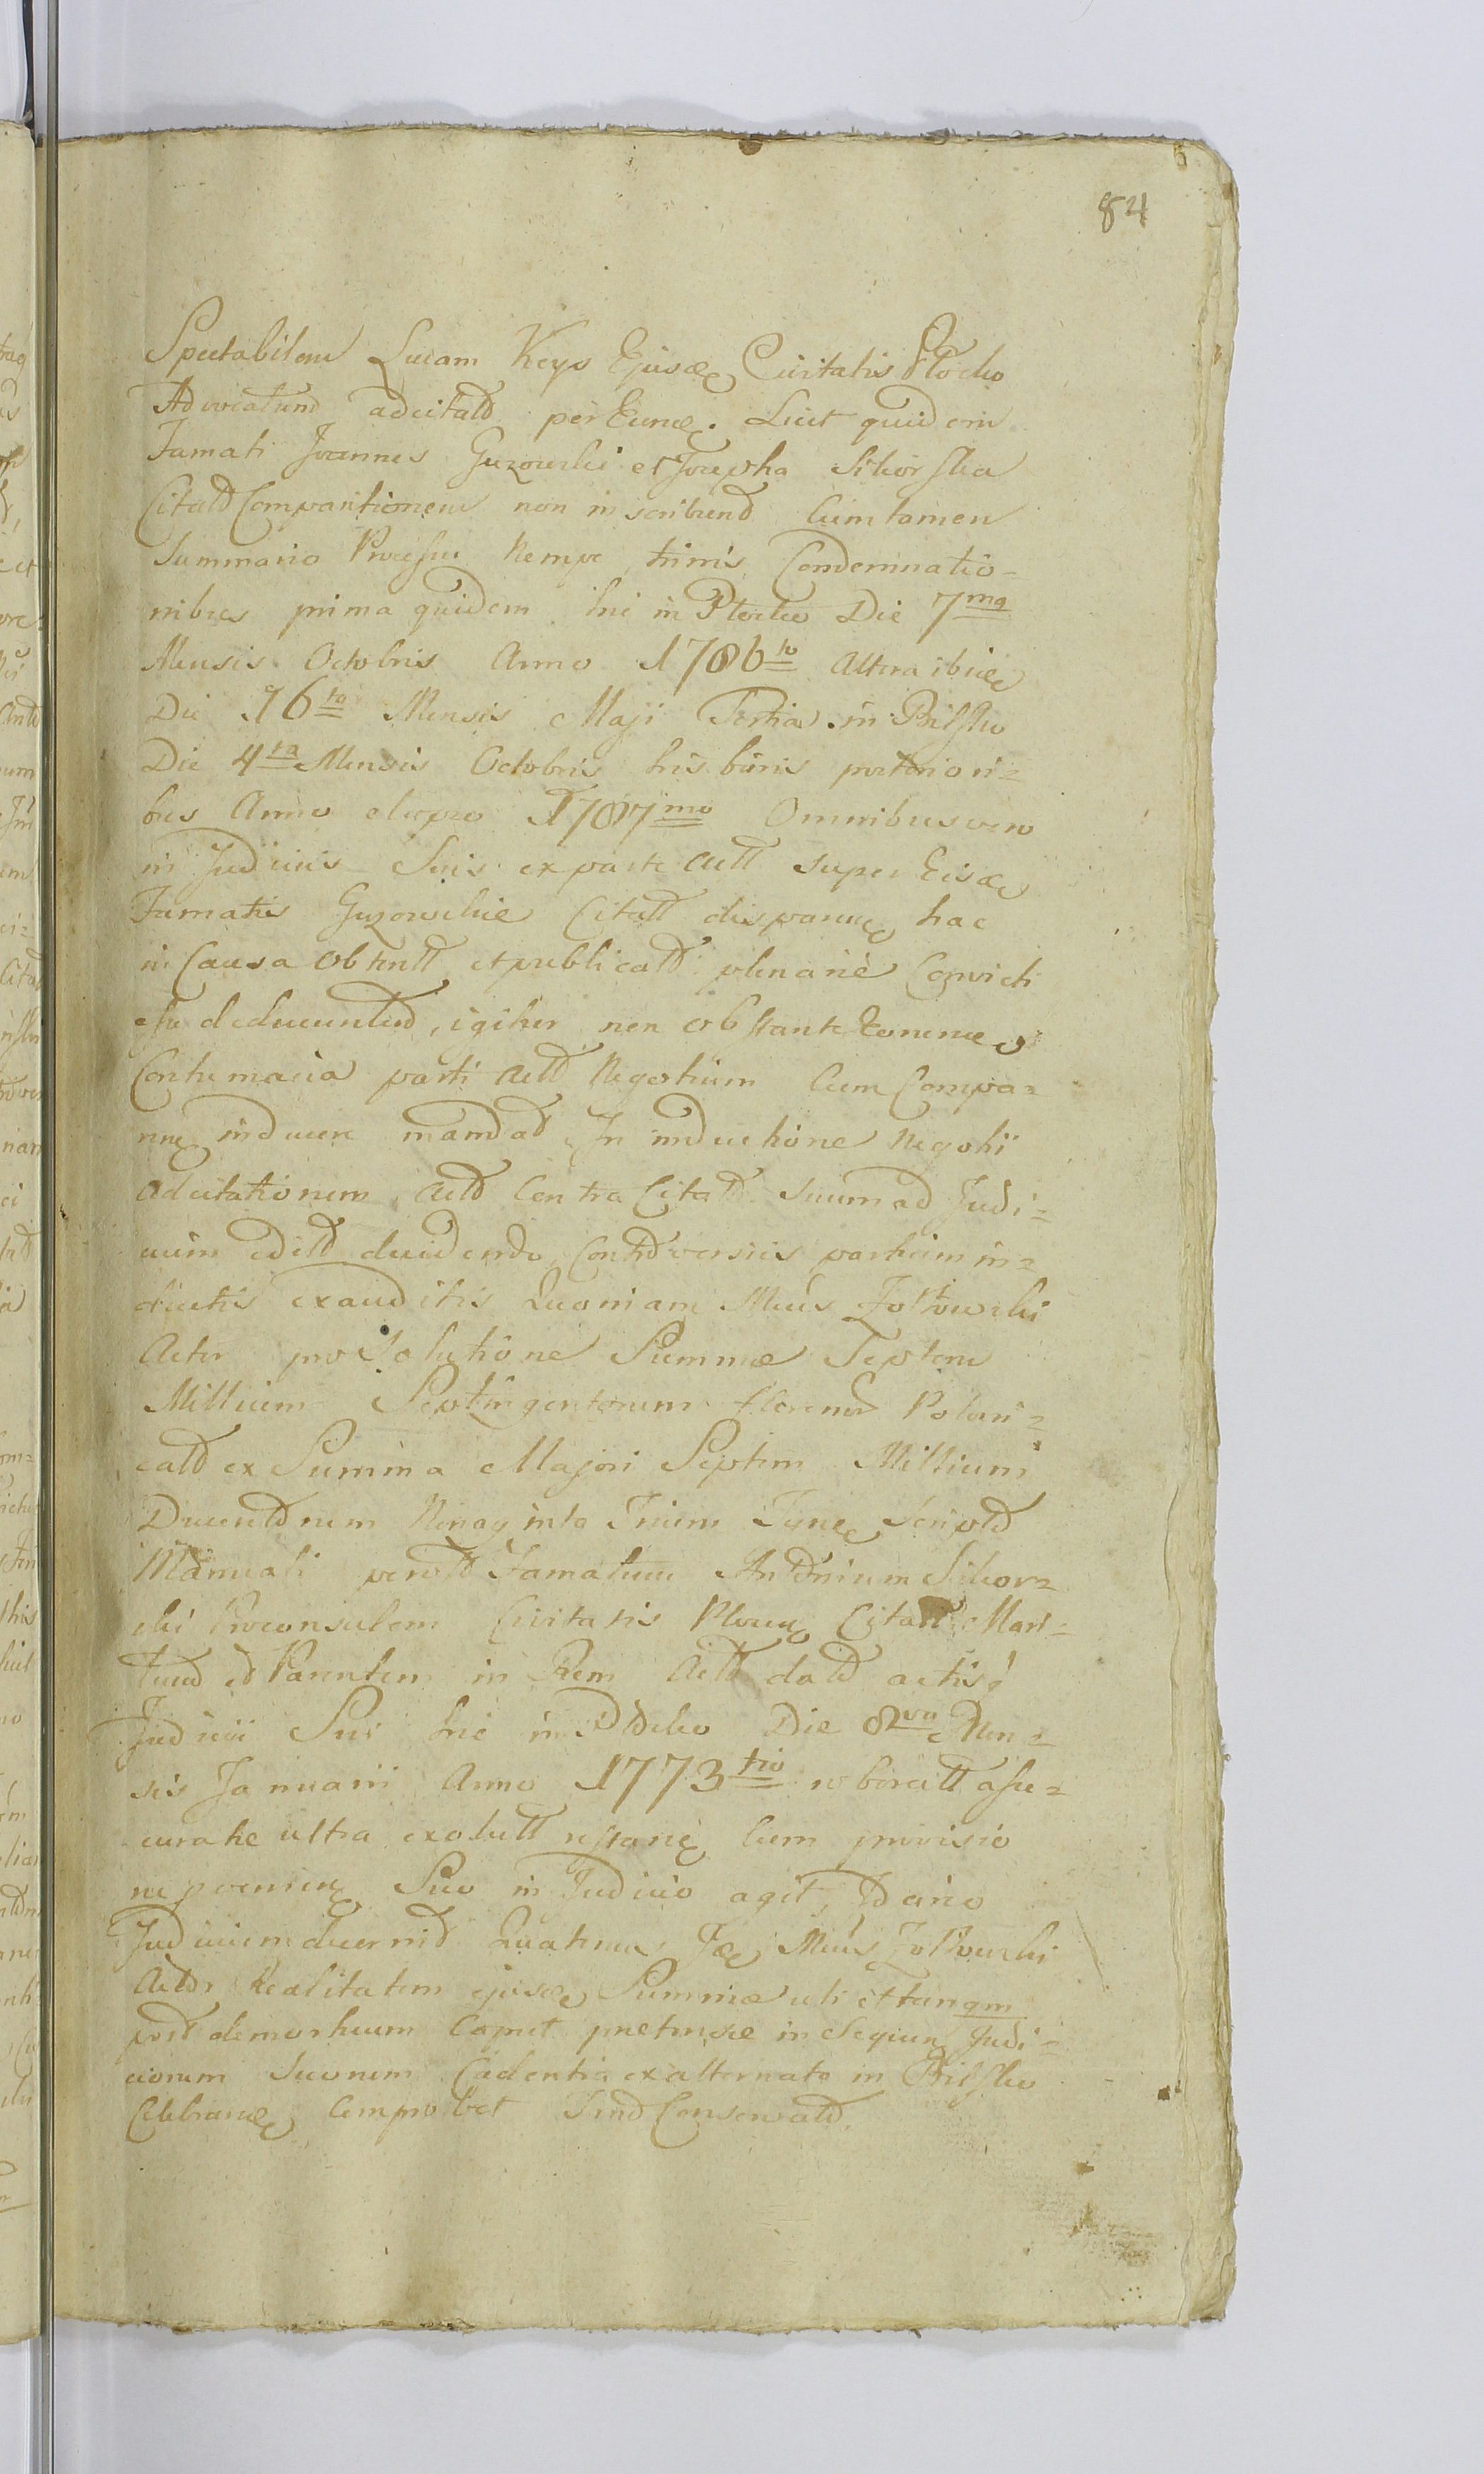 84
Spectabilem Lucam Keys Ejusde Civitatis Płocko
Advocatum adcitatd per Eunde. Licet quidem
Famati Joannes Guzowski et Josepha Sikorska
Citatd Comparitionem non inscribend Cum tamen
Summario Processu Nempe trinis Condemnatio=
nibus prima quidem hic in Płocko Die 7ma
Mensis Octobris Anno 1786to altera ibide
Die 16ta Mensis Maji Tertia in Bilsko
Die 4ta Mensis Octobris his binis posteriori=
bus Anno elapso 1787mo Omnibus vero
in Judiciis Suis ex parte Actt super Eisde
Famatis Guzowskie Citatt disparen hac
in Causa Obtentt et publicatt plenariè Convicti
esse deducuntud, igitur non obstante Eorunde
Contumacia parti Actd Negotium Cum Compa=
ren inducere mandad In inductione Negotii
adcitationem Actd Contra Citatd Suum ad Judi=
cium editd decidendo Controversiis partium in=
ductis exauditis Quoniam Mcus Zołtowski
Actor pro Solutione Summæ Septem
Millium Septingentorum florenor Poloni=
cald ex Summa Majori Septem Millium
Ducentorum Nonaginta Trium Tyne Scriptd
Manuali per otd Famatum Antonium Sikor=
ski Proconsulem Civitatis Ploce Citatt Mari=
tum et Parentem in Rem Actd datd actis
Judicii Sui hic in Płocko Die 8va Men=
sis Januarii Anno 1773tio roboratt assе=
curatæ ultra exolutt restane Cum provisio
ne provenien Suo in Judicio agit, Ideirco
Judicium decernid Quatenus Ide Mcus Zołtowski
Actor Realitatem ejusde Summæ uti et tanqm
post demortuum Caput prætensæ in Sequen Judi=
ciorum Suorum Cadentia exalternata in Bilsko
Celebrande Comprobet Sind Conservatd.